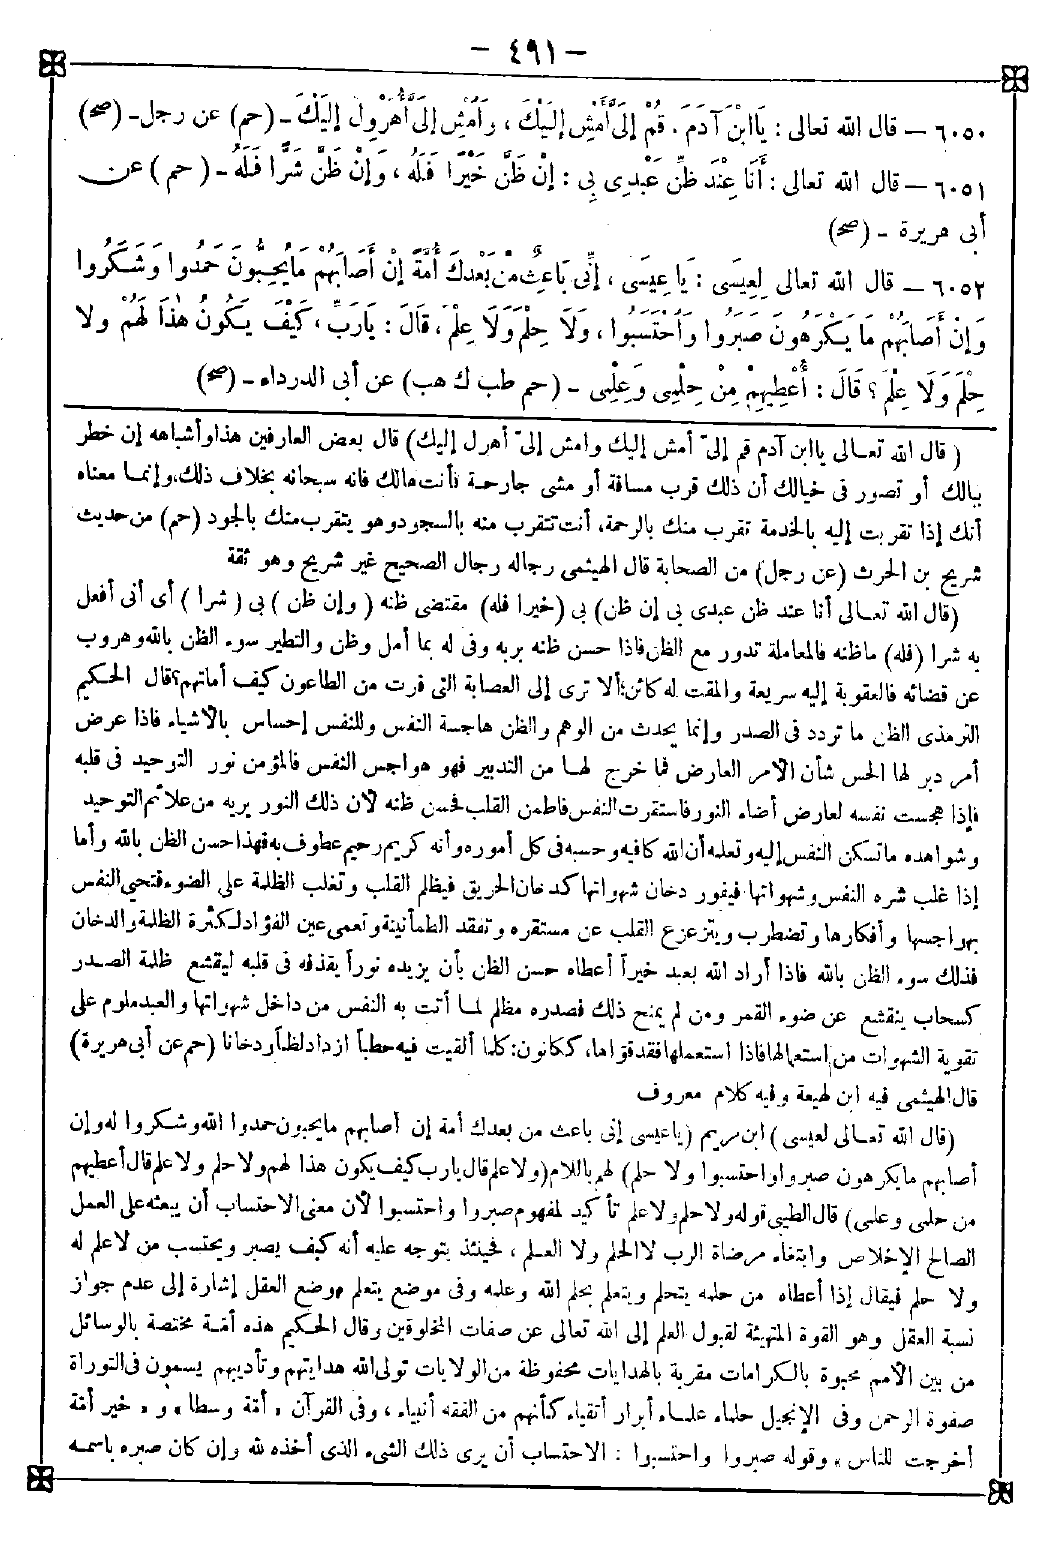 — ٤٩١ —
٦٠٥٠ — قال الله تعالى : يَا ابْنَ آدَمَ . قُمْ إِلَىَّ أَمْشِ إِلَيْكَ ، وَامْشِ إِلَىَّ أُهَرْوِلْ إِلَيْكَ — (حم) عن رجل — (صح)
٦٠٥١ — قال الله تعالى : أَنَا عِنْدَ ظَنِّ عَبْدِى بِى : إِنْ ظَنَّ خَيْرًا فَلَهُ ، وَإِنْ ظَنَّ شَرًّا فَلَهُ — ( حم ) عن
أبى هريرة — (صح)
٦٠٥٢ — قال الله تعالى لِعِيسَى : يَا عِيسَى ، إِنِّى بَاعِثٌ مِنْ بَعْدِكَ أُمَّةً إِنْ أَصَابَهُمْ مَا يُحِبُّونَ حَمِدُوا وَشَكَرُوا
وَإِنْ أَصَابَهُمْ مَا يَكْرَهُونَ صَبَرُوا وَاحْتَسَبُوا ، وَلَا حِلْمَ وَلَا عِلْمَ ، قَالَ : يَارَبِّ ، كَيْفَ يَكُونُ هٰذَا لَهُمْ وَلَا
حِلْمَ وَلَا عِلْمَ ؟ قَالَ : أُعْطِيهِمْ مِنْ حِلْمِى وَعِلْمِى — (حم طب ك هب) عن أبى الدرداء — (صح)
( قال الله تعـالى يا ابن آدم قم إلىّ أمش إليك وامش إلىّ أهرول إليك) قال بعض العارفين هذا وأشباهه إن خطر
ببالك أو تصور فى خيالك أن ذلك قرب مسافة أو مشى جارحة فأنت هالك فانه سبحانه بخلاف ذلك، وإنما معناه
أنك إذا تقربت إليه بالخدمة تقرب منك بالرحمة، أنت تتقرب منه بالسجود وهو يتقرب منك بالجود (حم) من حديث
شريح بن الحرث (عن رجل) من الصحابة قال الهيثمى رجاله رجال الصحيح غير شريح وهو ثقة
(قال الله تعـالى أنا عند ظن عبدى بى إن ظن) بى (خيرا فله) مقتضى ظنه ( وإن ظن ) بى ( شرا ) أى أنى أفعل
به شرا (فله) ماظنه فالمعاملة تدور مع الظن فاذا حسن ظنه بربه وفى له بما أمل وظن والتطير سوء الظن بالله وهروب
عن قضائه فالعقوبة إليه سريعة والمقت له كائن؛ ألا ترى إلى العصابة التى فرت من الطاعون كيف أماتهم؟ قال الحكيم
الترمذى الظن ما تردد فى الصدر وإنما يحدث من الوهم والظن هاجسة النفس وللنفس إحساس بالأشياء فاذا عرض
أمر دبر لها الحس شأن الامر العارض فما خرج لهـا من التدبير فهو هواجس النفس فالمؤمن نور التوحيد فى قلبه
فإذا هجست نفسه لعارض أضاء النور فاستقرت النفس فاطمن القلب فحسن ظنه لأن ذلك النور يريه من علائم التوحيد
وشواهده ماتسكن النفس إليه وتعلمه أن الله كافيه وحسبه فى كل أموره وأنه كريم رحيم عطوف به فهذا حسن الظن بالله وأما
إذا غلب شره النفس وشهواتها فيفور دخان شهواتها كدخان الحريق فيظلم القلب وتغلب الظلمة على الضوء فتحي النفس
بهواجسها وأفكارها وتضطرب ويتزعزع القلب عن مستقره وتفقد الطمأنينة وتعمى عين الفؤاد لكثرة الظلمة والدخان
فذلك سوء الظن بالله فاذا أراد الله بعبد خيراً أعطاه حسن الظن بأن يزيده نوراً يقذفه فى قلبه ليقشع ظلمة الصـدر
كسحاب ينقشع عن ضوء القمر ومن لم يمنح ذلك فصدره مظلم لمـا أتت به النفس من داخل شهواتها والعبد ملوم على
تقوية الشهوات من استعمالها فاذا استعملها فقد قواها، ككانون: كلما ألقيت فيه حطبا ازداد لظىً ودخانا (حم عن أبى هريرة)
قال الهيثمى فيه ابن لهيعة وفيه كلام معروف
(قال الله تعـالى لعيسى ) ابن مريم (ياعيسى إنى باعث من بعدك أمة إن أصابهم مايحبون حمدوا الله وشكروا له وإن
أصابهم مايكرهون صبروا واحتسبوا ولا حلم) لهم باللام (ولا علم قال يارب كيف يكون هذا لهم ولا حلم ولا علم قال أعطيهم
من حلمى وعلمى) قال الطيبى قوله ولا حلم ولا علم تأكيد لمفهوم صبروا واحتسبوا لأن معنى الاحتساب أن يبعثه على العمل
الصالح الإخلاص وابتغاء مرضاة الرب لا الحلم ولا العـلم ، فحينئذ يتوجه عليه أنه كيف يصبر ويحتسب من لا علم له
ولا حلم فيقال إذا أعطاه من حلمه يتحلم ويتعلم بحلم الله وعلمه وفى موضع يتعلم موضع العقل إشارة إلى عدم جواز
نسبة العقل وهو القوة المتهيئة لقبول العلم إلى الله تعالى عن صفات المخلوقين وقال الحكيم هذه أمـة مختصة بالوسائل
من بين الأمم محبوة بالكرامات مقربة بالهدايات محفوظة من الولايات تولى الله هدايتهم وتأديبهم يسمون فى التوراة
صفوة الرحمن وفى الإنجيل حلماء علمـاء أبرار أتقياء كأنهم من الفقه أنبياء ، وفى القرآن « أمة وسطا » و « خير أمة
أخرجت للناس » وقوله صبروا واحتسبوا : الاحتساب أن يرى ذلك الشىء الذى أخذه لله وإن كان صبره باسمـه